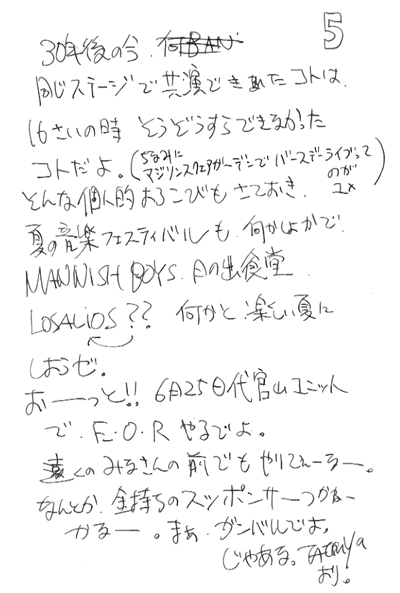 5
30年後の今、何BAN
同じステージで共演できあれたコトは、
16さいの時 そうぞうすらできなかった
コトだよ。(ちなみに
マジソンスクエアガーデンでバースデーライブって
のが
ユメ)
そんな個人的よろこびもさておき、
夏の音楽フェスティバルも、何かしょかで
MANNISH BOYS、月の出食堂
LOSALIOS?? 何かと楽しい夏に
しようぜ。
おーーっと!! 6月25日代官山ユニット
で、F.O.R やるでよ。
遠くのみなさんの前でもやりてぇーなー。
なんとか金持ちのスッポンサーつかねー
かなー。まぁ ガンバルでよ。
じゃあな。TATSUYA
より。